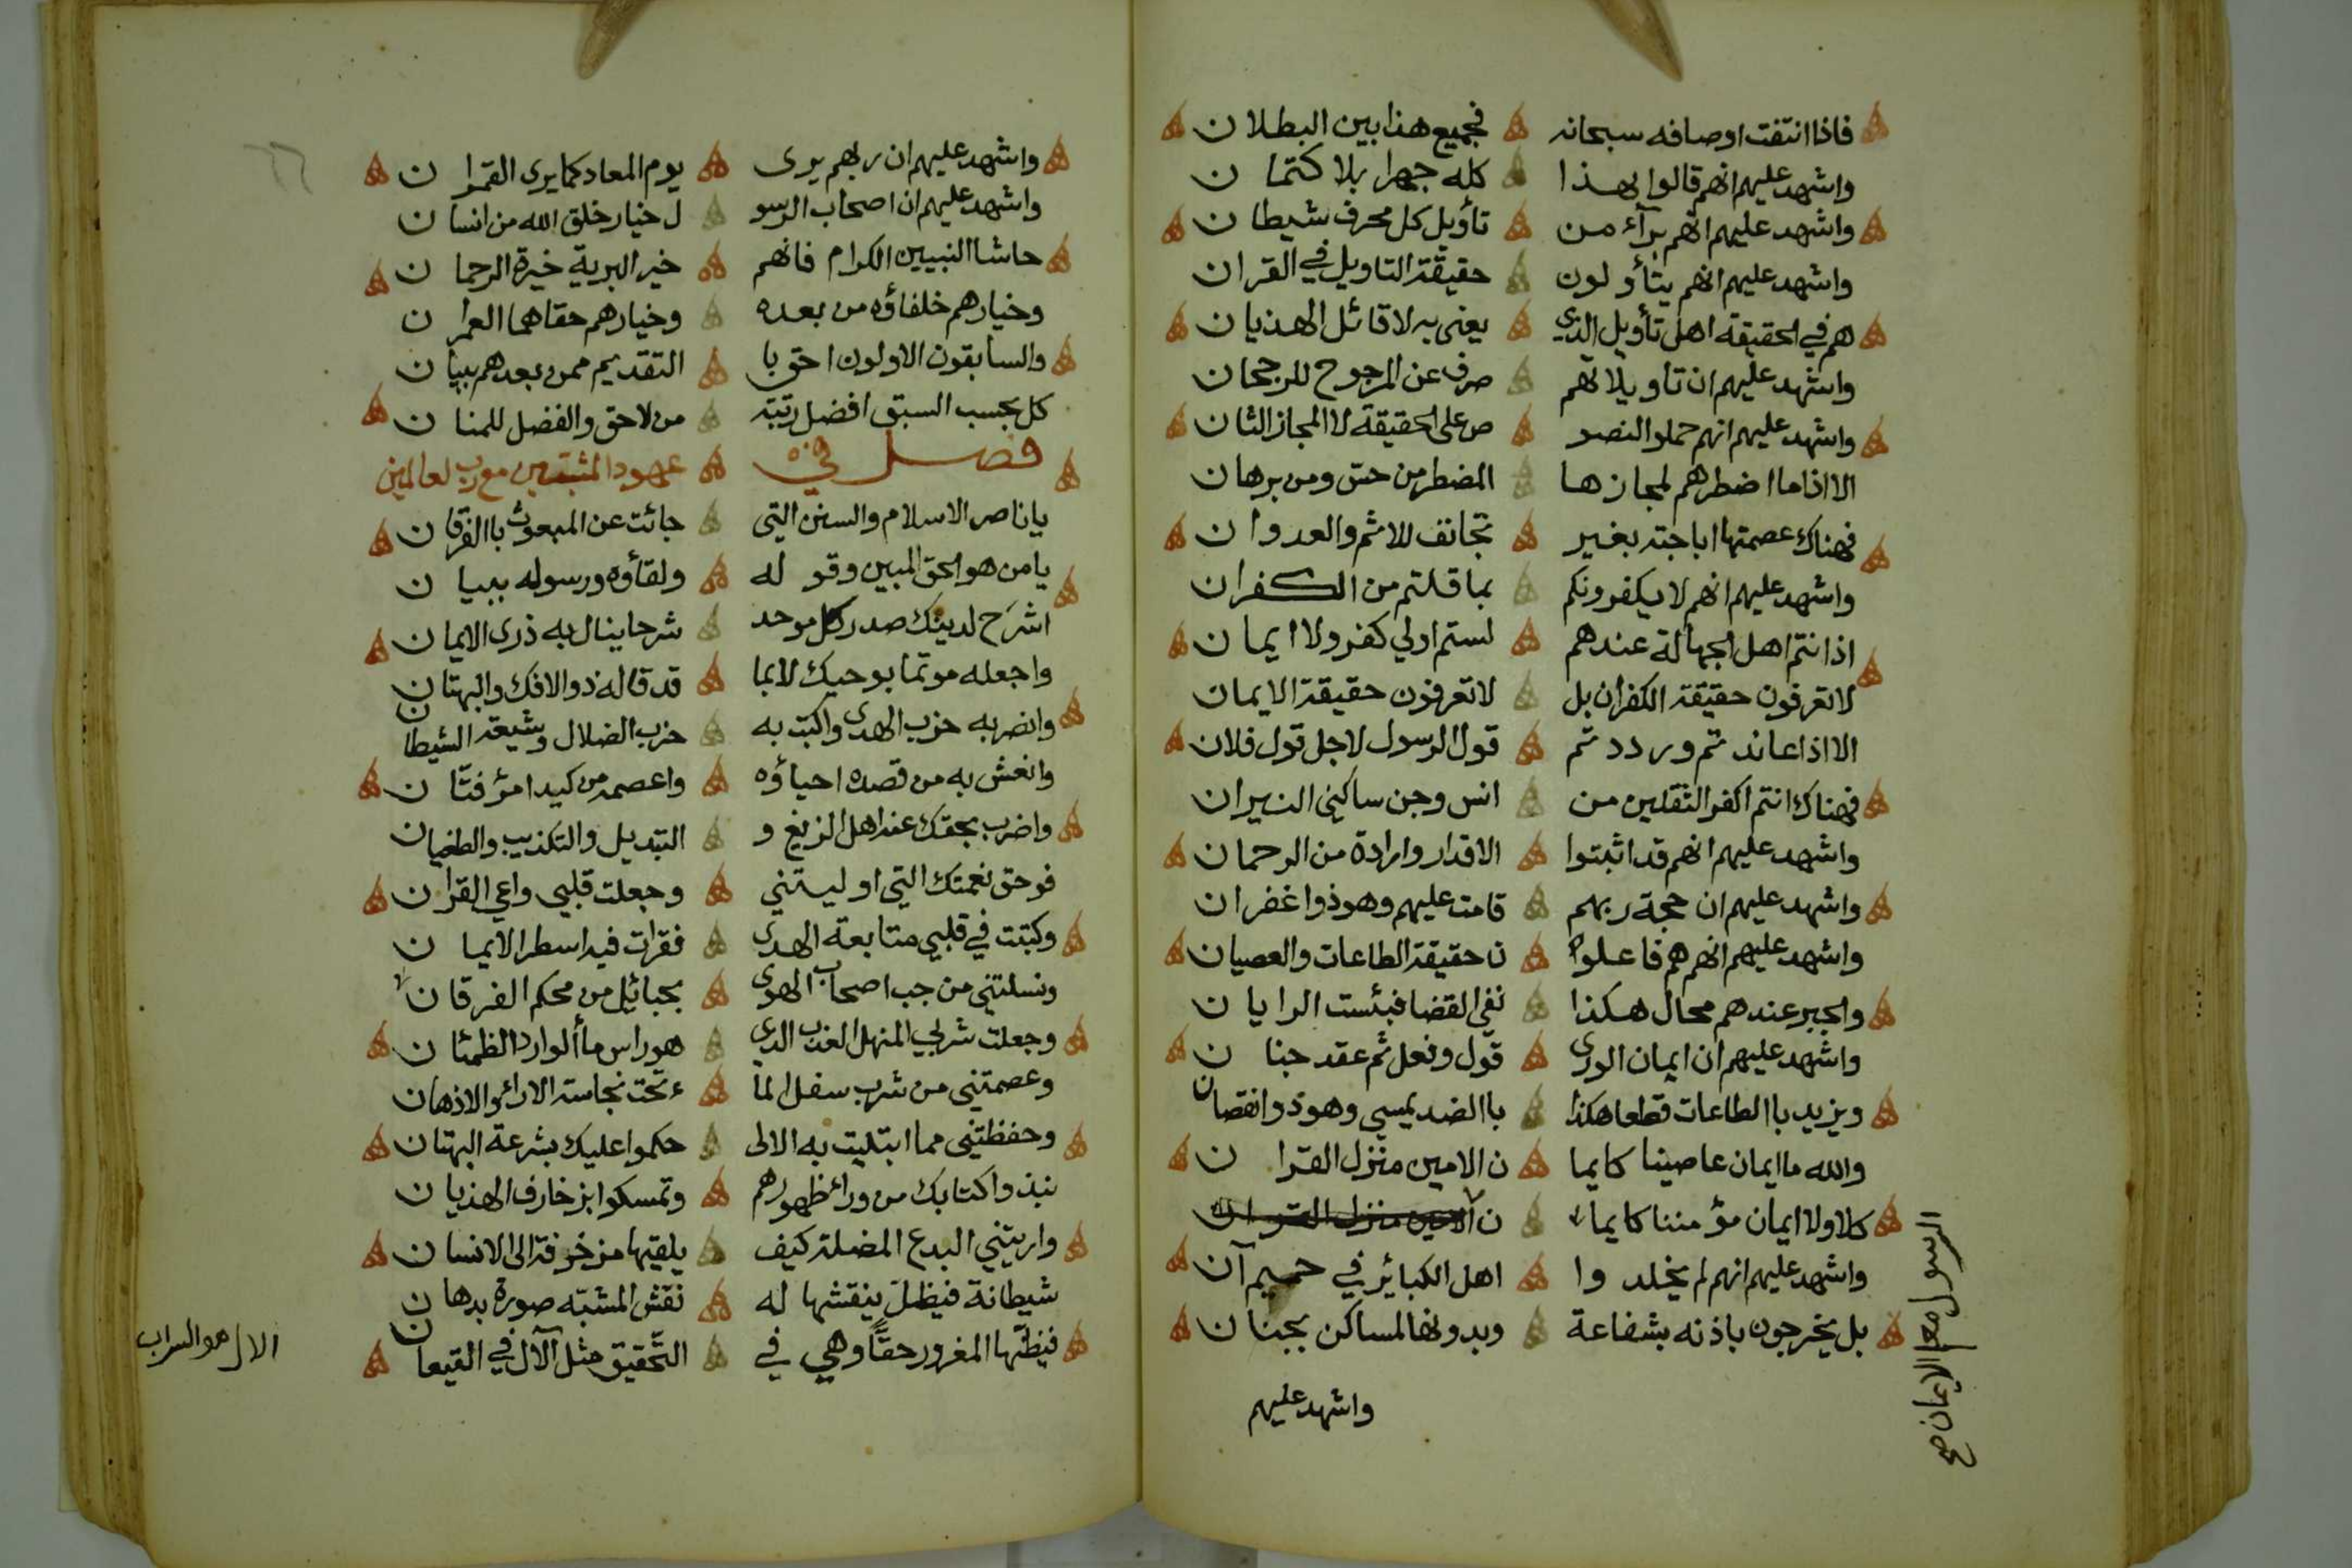 فاذا انتفت اوصافه سبحانه فجميع هذا بين البطلان
واشهد عليهم انهم قالوا بهذا كله جهرا بلا كتمان
واشهد عليهم انهم برآء من تأويل كل محرف شيطان
واشهد عليهم انهم يتأولون حقيقة التاويل في القران
هم في الحقيقة اهل تأويل الذي يعنى به لا قائل الهذيان
واشهد عليهم ان تاويلاتهم صرف عن المرجوح للرجحان
واشهد عليهم انهم حملوا النصو ص على الحقيقة لا المجاز الثان
الا اذا ما اضطرهم لمجازها المضطر من حس ومن برهان
فهناك عصمتها اباحته بغير تجانف للاثم والعدوان
واشهد عليهم انهم لا يكفرونكم بما قلتم من الكفران
اذ انتم اهل الجهالة عندهم لستم اولي كفر ولا ايمان
لا تعرفون حقيقة الكفران بل لا تعرفون حقيقة الايمان
الا اذا عاندتم ورددتم قول الرسول لاجل قول فلان
فهناك انتم اكفر الثقلين من انس وجن ساكني النيران
واشهد عليهم انهم قد اثبتوا الاقدار وارادة من الرحمان
واشهد عليهم ان حجة ربهم قامت عليهم وهو ذوا غفران
واشهد عليهم انهم هم فاعلو ن حقيقة الطاعات والعصيان
والجبر عندهم محال هكذا نفي القضا فبئست الرايان
واشهد عليهم ان ايمان الورى قول وفعل ثم عقد جنان
ويزيد باالطاعات قطعا هكذا باالضد يمسي وهو ذوا نقصان
والله ما ايمان عاصينا كايما ن الامين منزل القران
كلا ولا ايمان مؤمننا كايما ن الامين منزل القران
الرسول معلم الايمان صح
واشهد عليهم انهم لم يخلدوا اهل الكبائر في حميم آن
بل يخرجون باذنه بشفاعة وبدونها لمساكن بجنان
واشهد عليهم
٦٦
واشهد عليهم ان ربهم يرى يوم المعاد كما يرى القمران
واشهد عليهم ان اصحاب الرسو ل خيار خلق الله من انسان
حاشا النبيين الكرام فانهم خير البرية خيرة الرحمان
وخيارهم خلفاؤه من بعده وخيارهم حقا هما العمران
والسابقون الاولون احق با التقديم ممن بعدهم ببيان
كل بحسب السبق افضل رتبة من لاحق والفضل للمنان
فصل في عهود المثبتين مع رب لعالمين
يا ناصر الاسلام والسنن التي جائت عن المبعوث باالفرقان
يا من هو الحق المبين وقوله ولقاؤه ورسوله ببيان
اشرح لدينك صدر كل موحد شرحا ينال به ذرى الايمان
واجعله موتما بوحيك لا بما قد قاله ذو الافك والبهتان
وانصر به حزب الهدى واكبت به حزب الضلال وشيعة الشيطان
وانعش به من قصده احياؤه واعصمه من كيد امرؤ فتان
واضرب بحقك عنق اهل الزيغ و التبديل والتكذيب والطغيان
فوحق نعمتك التي اوليتني وجعلت قلبي واعي القران
وكتبت في قلبي متابعة الهدى فقرات فيه اسطر الايمان
ونسلتني من جب اصحاب الهوى بحبائل من محكم الفرقان
وجعلت شربي المنهل العذب الذي هو راس ماألوارد الظمئان
وعصمتني من شرب سفل الما ء تحت نجاسة الاراء والاذهان
وحفظتني مما ابتليت به الالى حكموا عليك بشرعة البهتان
نبذوا كتابك من وراء ظهورهم وتمسكوا بزخارف الهذيان
واريتني البدع المضلة كيف يلقيها مزخرفة الى الانسان
شيطانه فيظل ينقشها له نقش المشبه صورة بدهان
فيظنها المغرور حقًّا وهي في التحقيق مثل الآل في القيعان
الال هو السراب